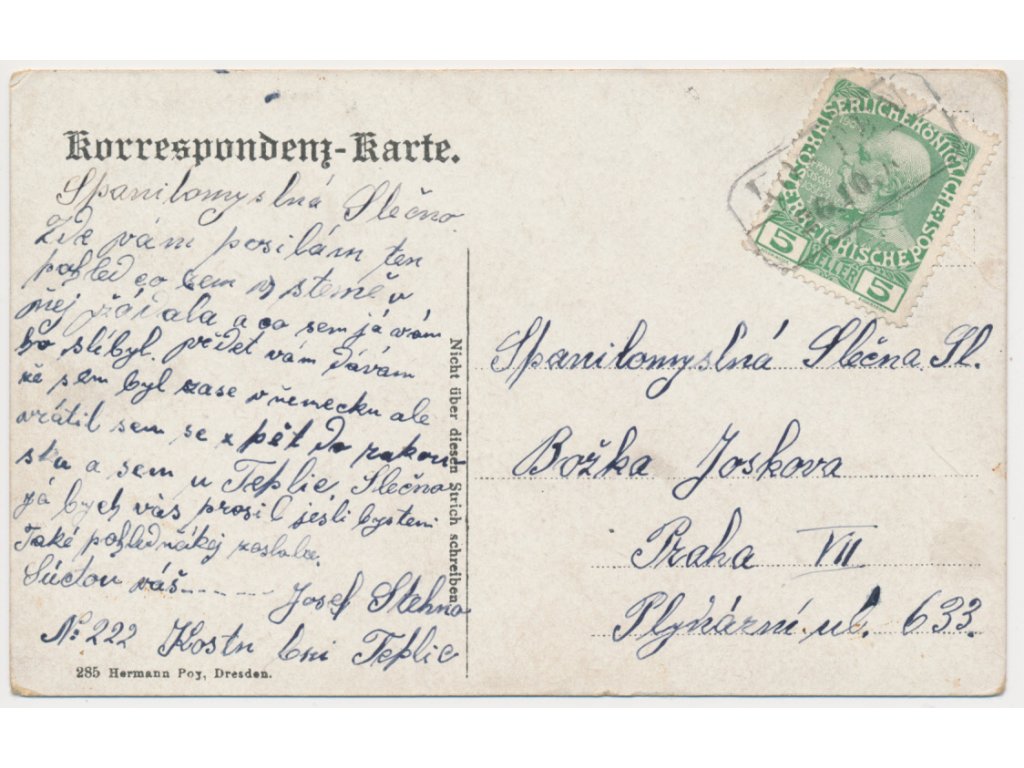 Korrespondenz-Karte.
Spanilomyslná Slečno.
Zde vám posilám ten
pohled co sem
žádala a co sem já vám
ho slíbyl. vám dávám
že sem byl zase v německu ale
vrátil sem se zpět do rakou-
sku a sem u Teplic, Slečno
já bych vás prosil jesli bysteni
Také pohled nákej zaslala.
Súctou váš------ Josef Stehno
No 222 Kostn bni Teplic
285 Hermann Poy, Dresden.
Nicht über diesen Strich schreiben
KAISERLICHE KÖNIGLICHE
ÖSTERREICHISCHE POST
5 HELLER 5
Spanilomyslná Slečna Sl.
Božka Joskova
Praha VII
Plynární ul. 633.